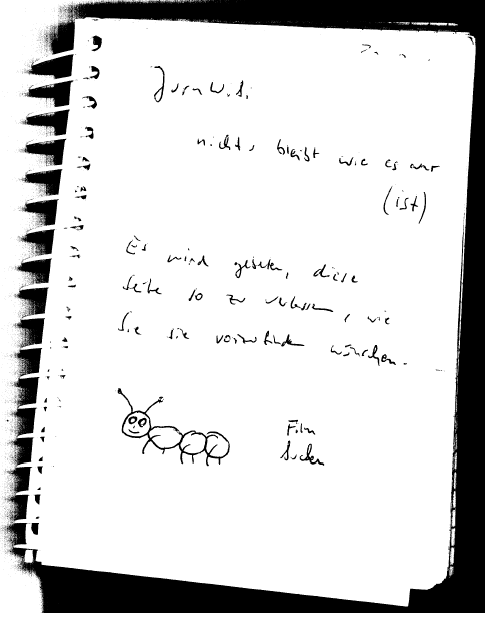 nichts bleibt wie es war
(ist)
Es wird gebeten, diese
Seite so zu verlassen, wie
Sie sie vorzufinden wünschen.
Film
Suchen